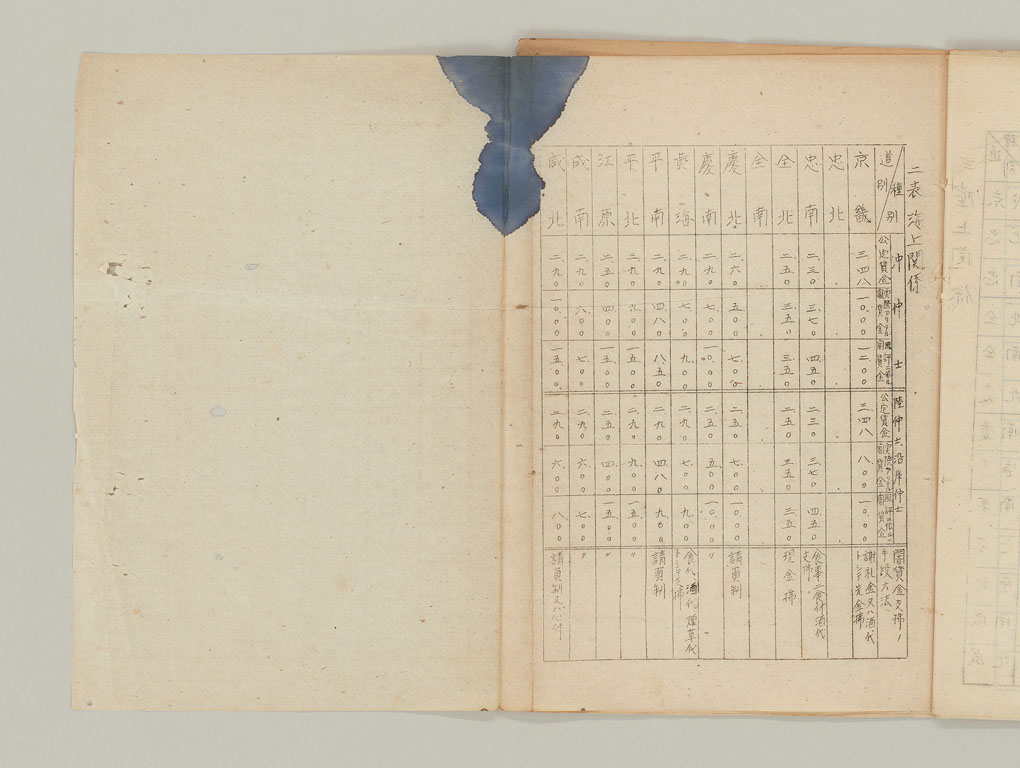 二表 海上関係
種別
道別
沖仲士
陸仲士、沿岸仲士
公定賃金
闇賃金
闇賃金
公定賃金
闇賃金
闇賃金
闇賃金支拂ノ手段方法
京畿 三.四八 一〇.〇〇 一二.〇〇 三.四八 八.〇〇 一〇.〇〇 謝礼金又ハ酒代トシテ先金拂
忠北
忠南 二.三〇 三.七〇 四.五〇 二.三〇 三.七〇 四.五〇 食事二食付酒代支拂
全北 二.五〇 三.五〇 三.五〇 二.五〇 三.五〇 三.五〇 現金拂
全南
慶北 二.六〇 五.〇〇 七.〇〇 二.五〇 七.〇〇 一〇.〇〇 請負制
慶南 二.九〇 七.〇〇 一〇.〇〇 二.五〇 五.〇〇 一〇.〇〇 〃
黄海 二.九〇 七.〇〇 九.〇〇 二.九〇 七.〇〇 九.〇〇 食代、酒代、煙草代トシテ拂
平南 二.九〇 四.八〇 八.五〇 二.九〇 四.八〇 九.〇〇 請負制
平北 三.九〇 九.〇〇 一五.〇〇 二.九〇 九.〇〇 一五.〇〇 〃
江原 二.五〇 四.〇〇 一五.〇〇 二.九〇 四.〇〇 一五.〇〇 〃
咸南 二.九〇 六.〇〇 七.〇〇 二.九〇 六.〇〇 七.〇〇 〃
咸北 二.九〇 一〇.〇〇 一五.〇〇 二.九〇 六.〇〇 八.〇〇 請負制又ハ心付